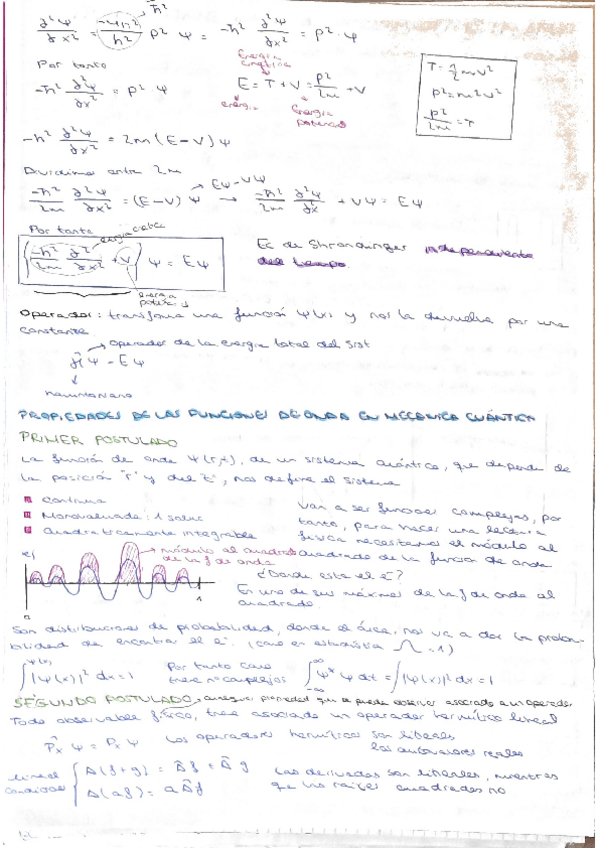 ∂²Ψ/∂x² = -4π²/h² p² Ψ = -ħ² ∂²Ψ/∂x² = p² · Ψ
ħ²
Por tanto
-ħ² ∂²Ψ/∂x² = p² · Ψ
Energía cinética
E = T + V = p²/2m + V
energía
Energía potencial
T = 1/2 mv²
p² = m²v²
p²/2m = T
-ħ² ∂²Ψ/∂x² = 2m (E-V) Ψ
Dividimos entre 2m
EΨ-VΨ
-ħ²/2m ∂²Ψ/∂x² = (E-V) Ψ → -ħ²/2m ∂²Ψ/∂x + VΨ = EΨ
Por tanto
energía cinética
{-ħ²/2m ∂²/∂x² + V} Ψ = EΨ
Ec de Shrondinger independiente del tiempo
energía potencial
Operador: transforma una función Ψ(x) y nos la devuelve por una
constante
Operador de la energía total del sist
Ĥ Ψ - EΨ
hamiltoniano
PROPIEDADES DE LAS FUNCIONES DE ONDA EN MECÁNICA CUÁNTICA
PRIMER POSTULADO
La función de onda Ψ(r,t), de un sistema cuántico, que depende de
la posición "r" y del "t", nos define el sistema
Continua
Monovaluada: 1 solución
Cuadraticamente integrable
Van a ser funciones complejas, por
tanto, para hacer una lectura
física necesitamos el módulo al
cuadrado de la función de onda
ej
módulo al cuadrado
de la f de onda
¿Donde está el e⁻?
En uno de sus máximos de la f de onda al
cuadrado
Son distribuciones de probabilidad, donde el área, nos va a dar la proba-
bilidad de encontrar el e⁻. (como en estadística =1)
∫|Ψ(x)|² dx = 1
Por tanto como
tree nº complejos
∫ Ψ* Ψ dt = ∫|Ψ(x)|² dx = 1
SEGUNDO POSTULADO, cualquier propiedad que se puede observar asociado a un operador
Todo observable físico, tree asociado un operador hermítico lineal
P̂x Ψ = Px Ψ
Los operadores hermíticos son lineales
los autovalores reales
Lineal
condiciones
Â(f+g) = Âf + Âg
Â(af) = aÂf
Las derivadas son lineales, mientras
que las raíces cuadradas no